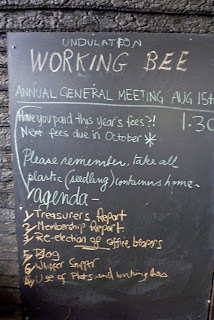 UNDULATION
WORKING BEE
ANNUAL GENERAL MEETING AUG 15th
Have you paid this Year's fees?! 1.30
Next fees due in October *
Please remember, take all
plastic (seedling) containers home.
agenda -
1, Treasurer's Report
2, Membership Report
3, Re-election of office bearers
5, Blog
6, Whipper Snipper
Use of Plots and working bees